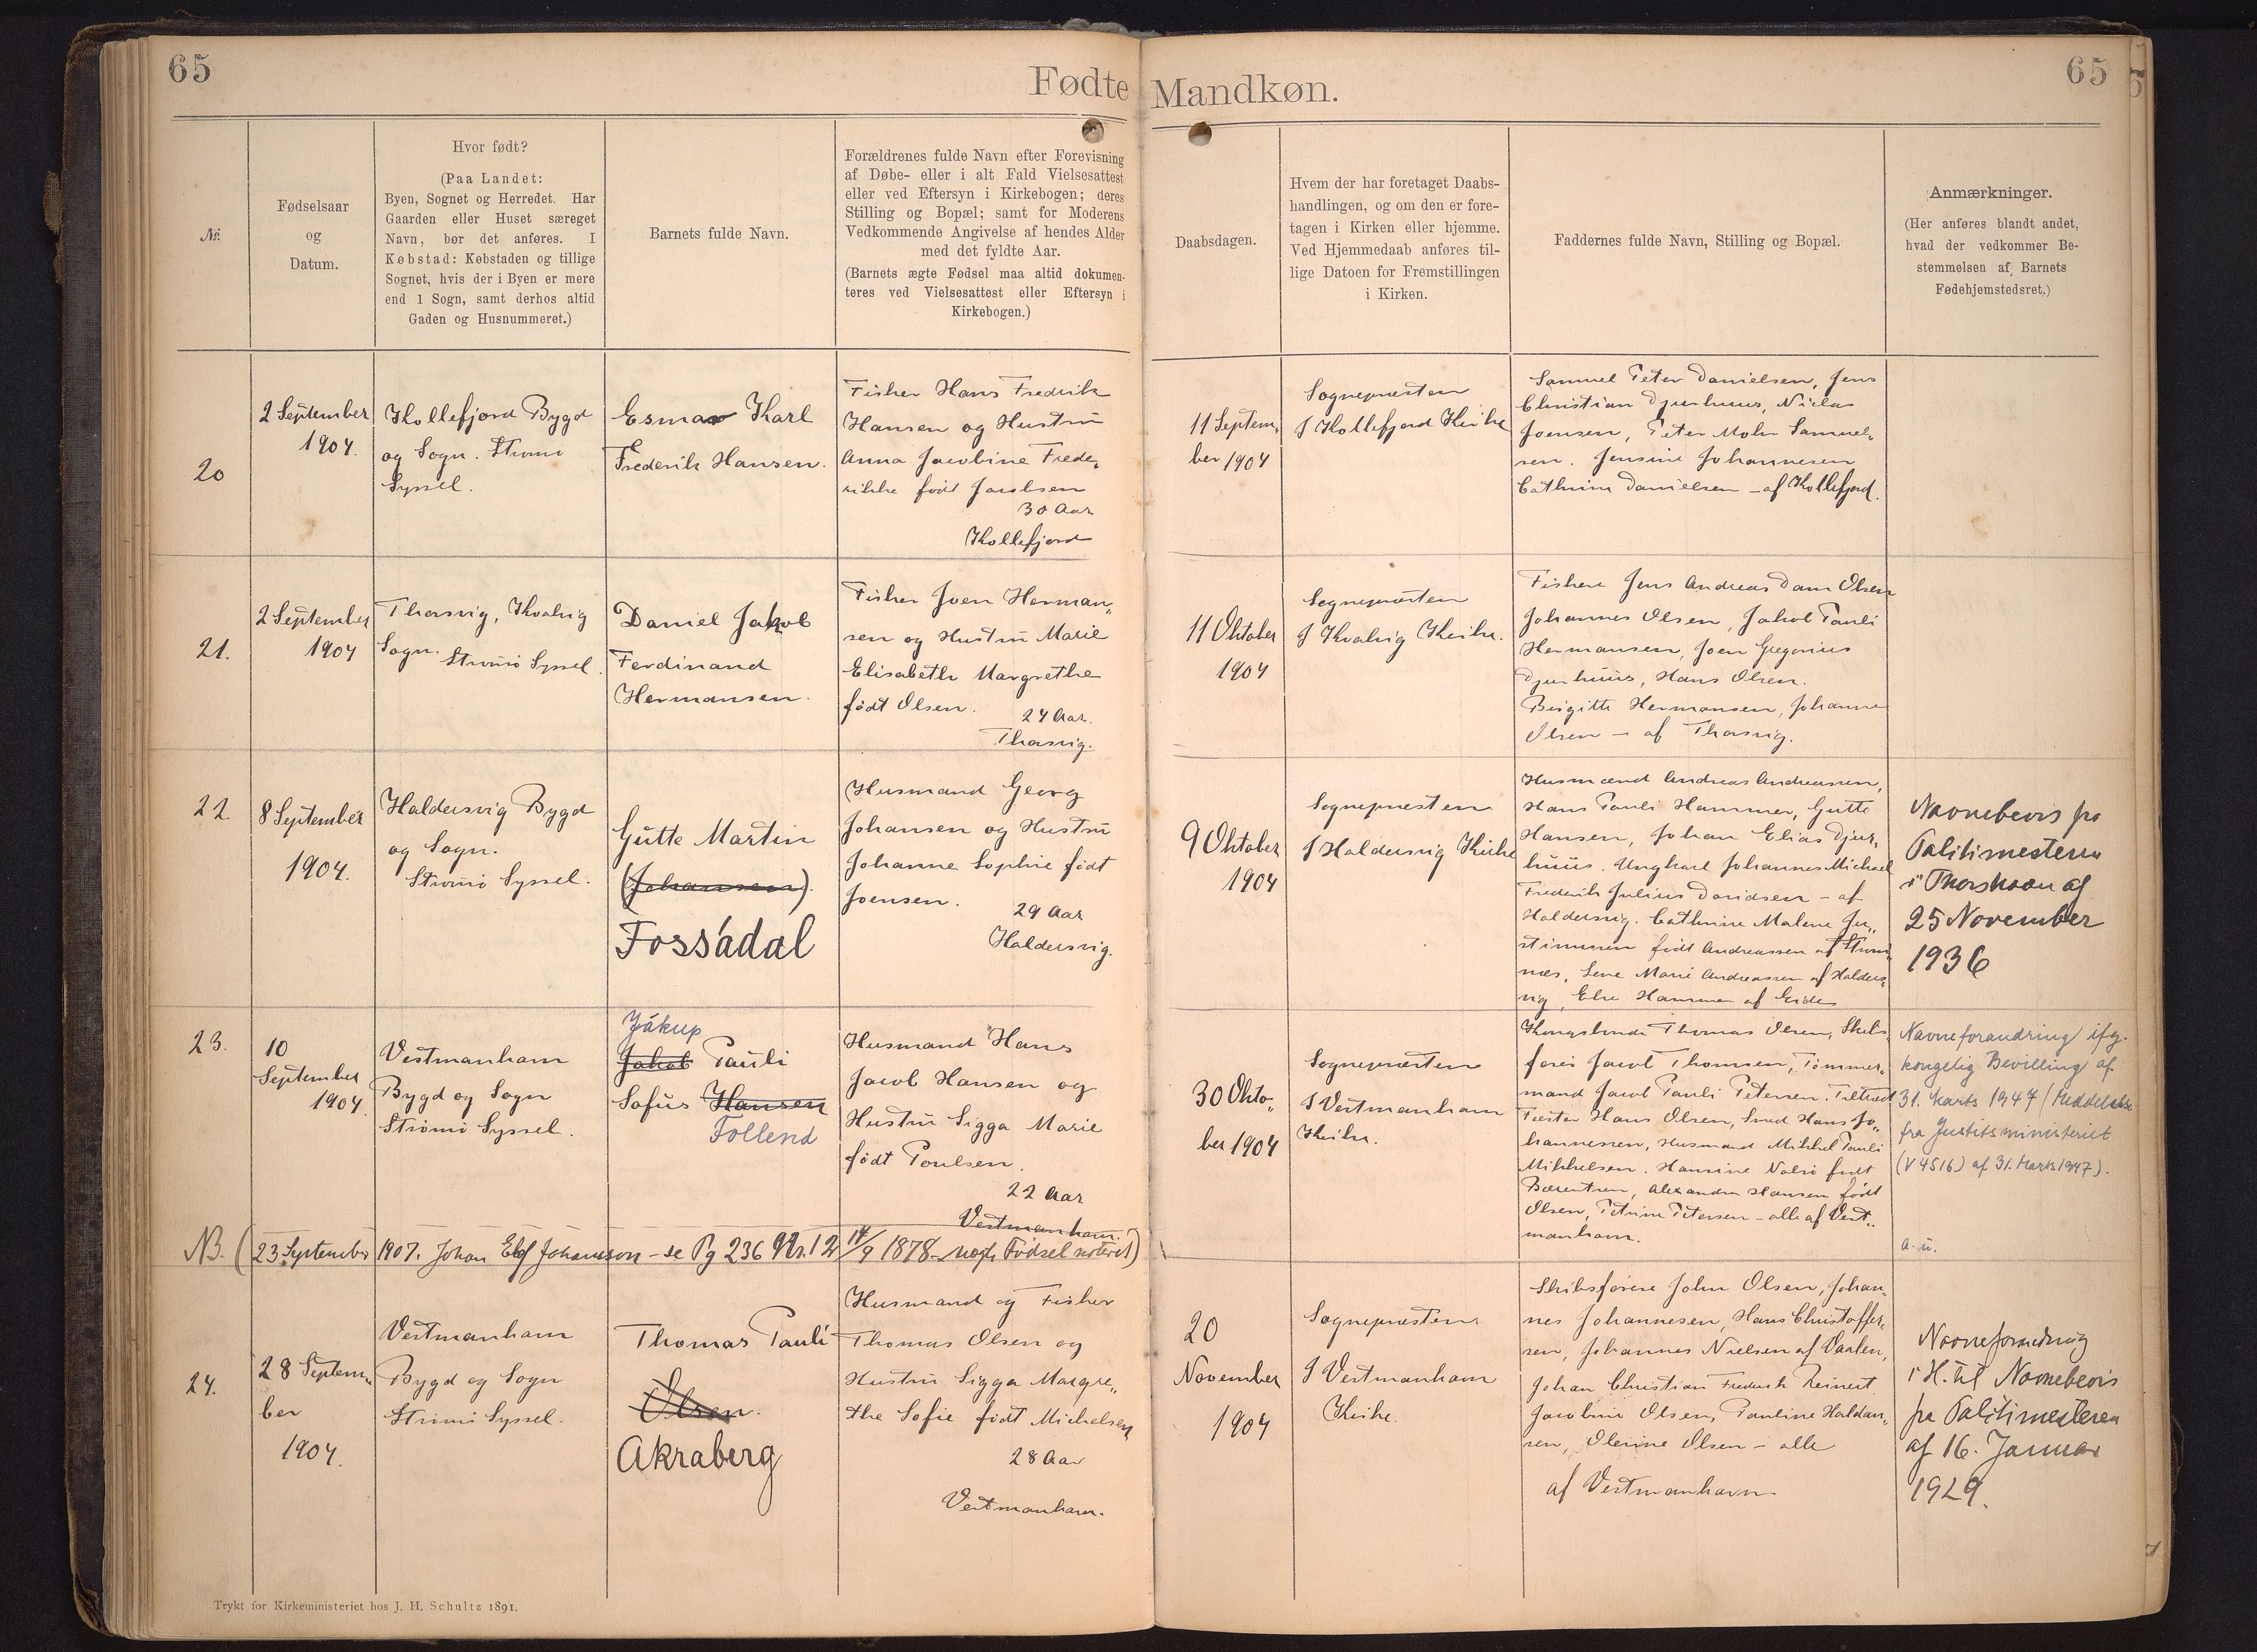 65
Fødte
Mandkøn.
65
№.
Fødselsaar
og
Datum.
Hvor født?
(Paa Landet:
Byen, Sognet og Herredet. Har
Gaarden eller Huset særeget
Navn, bør det anføres. I
Købstad: Købstaden og tillige
Sognet, hvis der i Byen er mere
end 1 Sogn, samt derhos altid
Gaden og Husnummeret.)
Barnets fulde Navn.
Forældrenes fulde Navn efter Forevisning
af Døbe- eller i alt Fald Vielsesattest
eller ved Eftersyn i Kirkebogen; deres
Stilling og Bopæl; samt for Moderens
Vedkommende Angivelse af hendes Alder
med det fyldte Aar.
(Barnets ægte Fødsel maa altid dokumen-
teres ved Vielsesattest eller Eftersyn i
Kirkebogen.)
Daabsdagen.
Hvem der har foretaget Daabs-
handlingen, og om den er fore-
tagen i Kirken eller hjemme.
Ved Hjemmedaab anføres til-
lige Datoen for Fremstillingen
i Kirken.
Faddernes fulde Navn, Stilling og Bopæl.
Anmærkninger.
(Her anføres blandt andet,
hvad der vedkommer Be-
stemmelsen af Barnets
Fødehjemstedsret.)
20
2 September
1904.
Kollefjord Bygd
og Sogn. Strømø
Syssel.
Esmar Karl
Frederik Hansen.
Fisker Hans Frederik
Hansen og Hustru
Anna Jacobine Frede„
rikke født Jacobsen
30 Aar
Kollefjord
11 Septem„
ber 1904
Sognepræsten
I Kollefjord Kirke
Samuel Peter Danielsen, Jens
Christian Djurhuus, Niclas
Joensen, Peter Mohr Samuel„
sen. Jensine Johannesen
Cathrine Danielsen – af Kollefjord.
21.
2 September
1904
Thorsvig, Kvalvig
Sogn. Strømø Syssel.
Daniel Jakob
Ferdinand
Hermansen.
Fisker Joen Herman„
sen og Hustru Marie
Elisabeth Margrethe
født Olsen.
24 Aar.
Thorsvig.
11 Oktober
1904
Sognepræsten
I Kvalvig Kirke.
Fiskere Jens Andreas Dam Olsen
Johannes Olsen, Jakob Pauli
Hermansen, Joen Gregorius
Djurhuus, Hans Olsen.
Birgitte Hermansen, Johanne
Olsen – af Thorsvig.
22.
8 September
1904.
Haldersvig Bygd
og Sogn.
Strømø Syssel.
Gutte Martin
(Johansen).
Fossádal
Husmand Georg
Johansen og Hustru
Johanne Sophie født
Joensen.
29 Aar
Haldersvig.
9 Oktober
1904
Sognepræsten
I Haldersvig Kirke
Husmænd Andreas Andreasen,
Hans Pauli Hammer, Gutte
Hansen, Johan Elias Djur„
huus. Ungkarl Johannes Michael
Frederik Julius Davidsen – af
Haldersvig. Cathrine Malene Ju„
stinussen født Andreassen af Strøm„
næs, Lene Marie Andreassen af Halders„
vig, Else Hammer af Eide
Navnebevis fra
Politimesteren
i Thorshavn af
25 November
1936
23.
10
September
1904.
Vestmanhavn
Bygd og Sogn
Strømø Syssel.
Jákup
Jakob Pauli
Sofus Hansen
Follend
Husmand Hans
Jacob Hansen og
Hustru Sigga Marie
født Poulsen.
22 Aar
Vestmanhavn.
30 Okto„
ber 1904
Sognepræsten
I Vestmanhavn
Kirke.
Kongsbonde Thomas Olsen, Skibs„
fører Jacob Thomsen, Tømmer„
mand Jacob Pauli Petersen.
Fæster Hans Olsen, Smed Hans Jo„
hannesen, Husmand Mikkel Pauli
Mikkelsen. Hansine Nolsø født
Bærentsen, Alexandra Hansen født
Olsen, Petrine Petersen – alle af Vest„
manhavn.
Navneforandring ifg.
kongelig Bevilling af
31. Marts 1947 (Meddelelse
fra Justitsministeriet
(V 4516) af 31. Marts 1947).
a. u.
NB. (23 September 1907. Johan Elof Johansson – se Pg 236 Nr. 12 14/9 1878 Fødsel noteret)
24.
28 Septem„
ber
1904.
Vestmanhavn
Bygd og Sogn
Strømø Syssel.
Thomas Pauli
Olsen.
Akraberg
Husmand og Fisker
Thomas Olsen og
Hustru Sigga Margre„
the Sofie født Michelsen
28 Aar
Vestmanhavn.
20
November
1904
Sognepræsten
I Vestmanhavn
Kirke.
Skibsførere John Olsen, Johan„
nes Johannesen, Hans Christoffer„
sen, Johannes Nielsen af Vaalen,
Johan Christian Frederik Reinert
Jacobine Olsen, Pauline Haldan„
sen, Olevine Olsen – alle
af Vestmanhavn
Navneforandring
i H. til Navnebevis
fra Politimesteren
af 16. Januar
1929.
Trykt for Kirkeministeriet hos J. H. Schultz 1891.